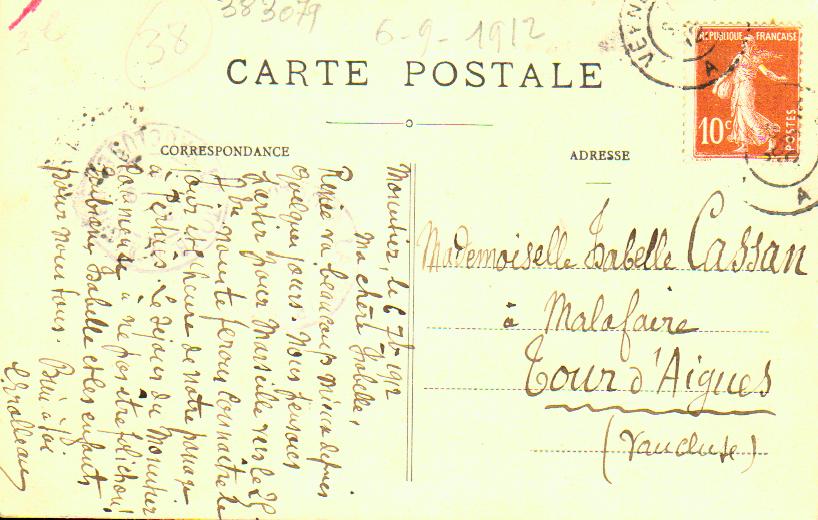 383079
38
6-9-1912
CARTE POSTALE
CORRESPONDANCE
ADRESSE
RÉPUBLIQUE FRANÇAISE
10c
POSTES
A
A
Moustier, le 6 7b 1912
Ma chère Isabelle,
Renée va beaucoup mieux depuis
quelques jours. Nous pensons
partir pour Marseille vers le 25
Je vous ferai connaître le
jour et l'heure de notre passage
à Pertuis. Le séjour du Moustier
commence à ne pas être folichon!
Isabelle et les enfants
pour nous tous. Bien à toi
Mademoiselle Isabelle Cassan
à Malafaire
Tour d'Aigues
(Vaucluse)